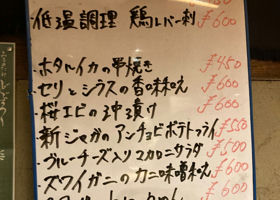 低温調理 鶏レバー刺 ¥600
・ホタルイカの串焼き ¥450
・セリとシラスの香味和え ¥600
・桜エビの沖漬け ¥600
・新じゃがのアンチョビポテトフライ ¥550
・ブルーチーズ入りマカロニサラダ ¥500
・ズワイガニのカニ味噌和え ¥600